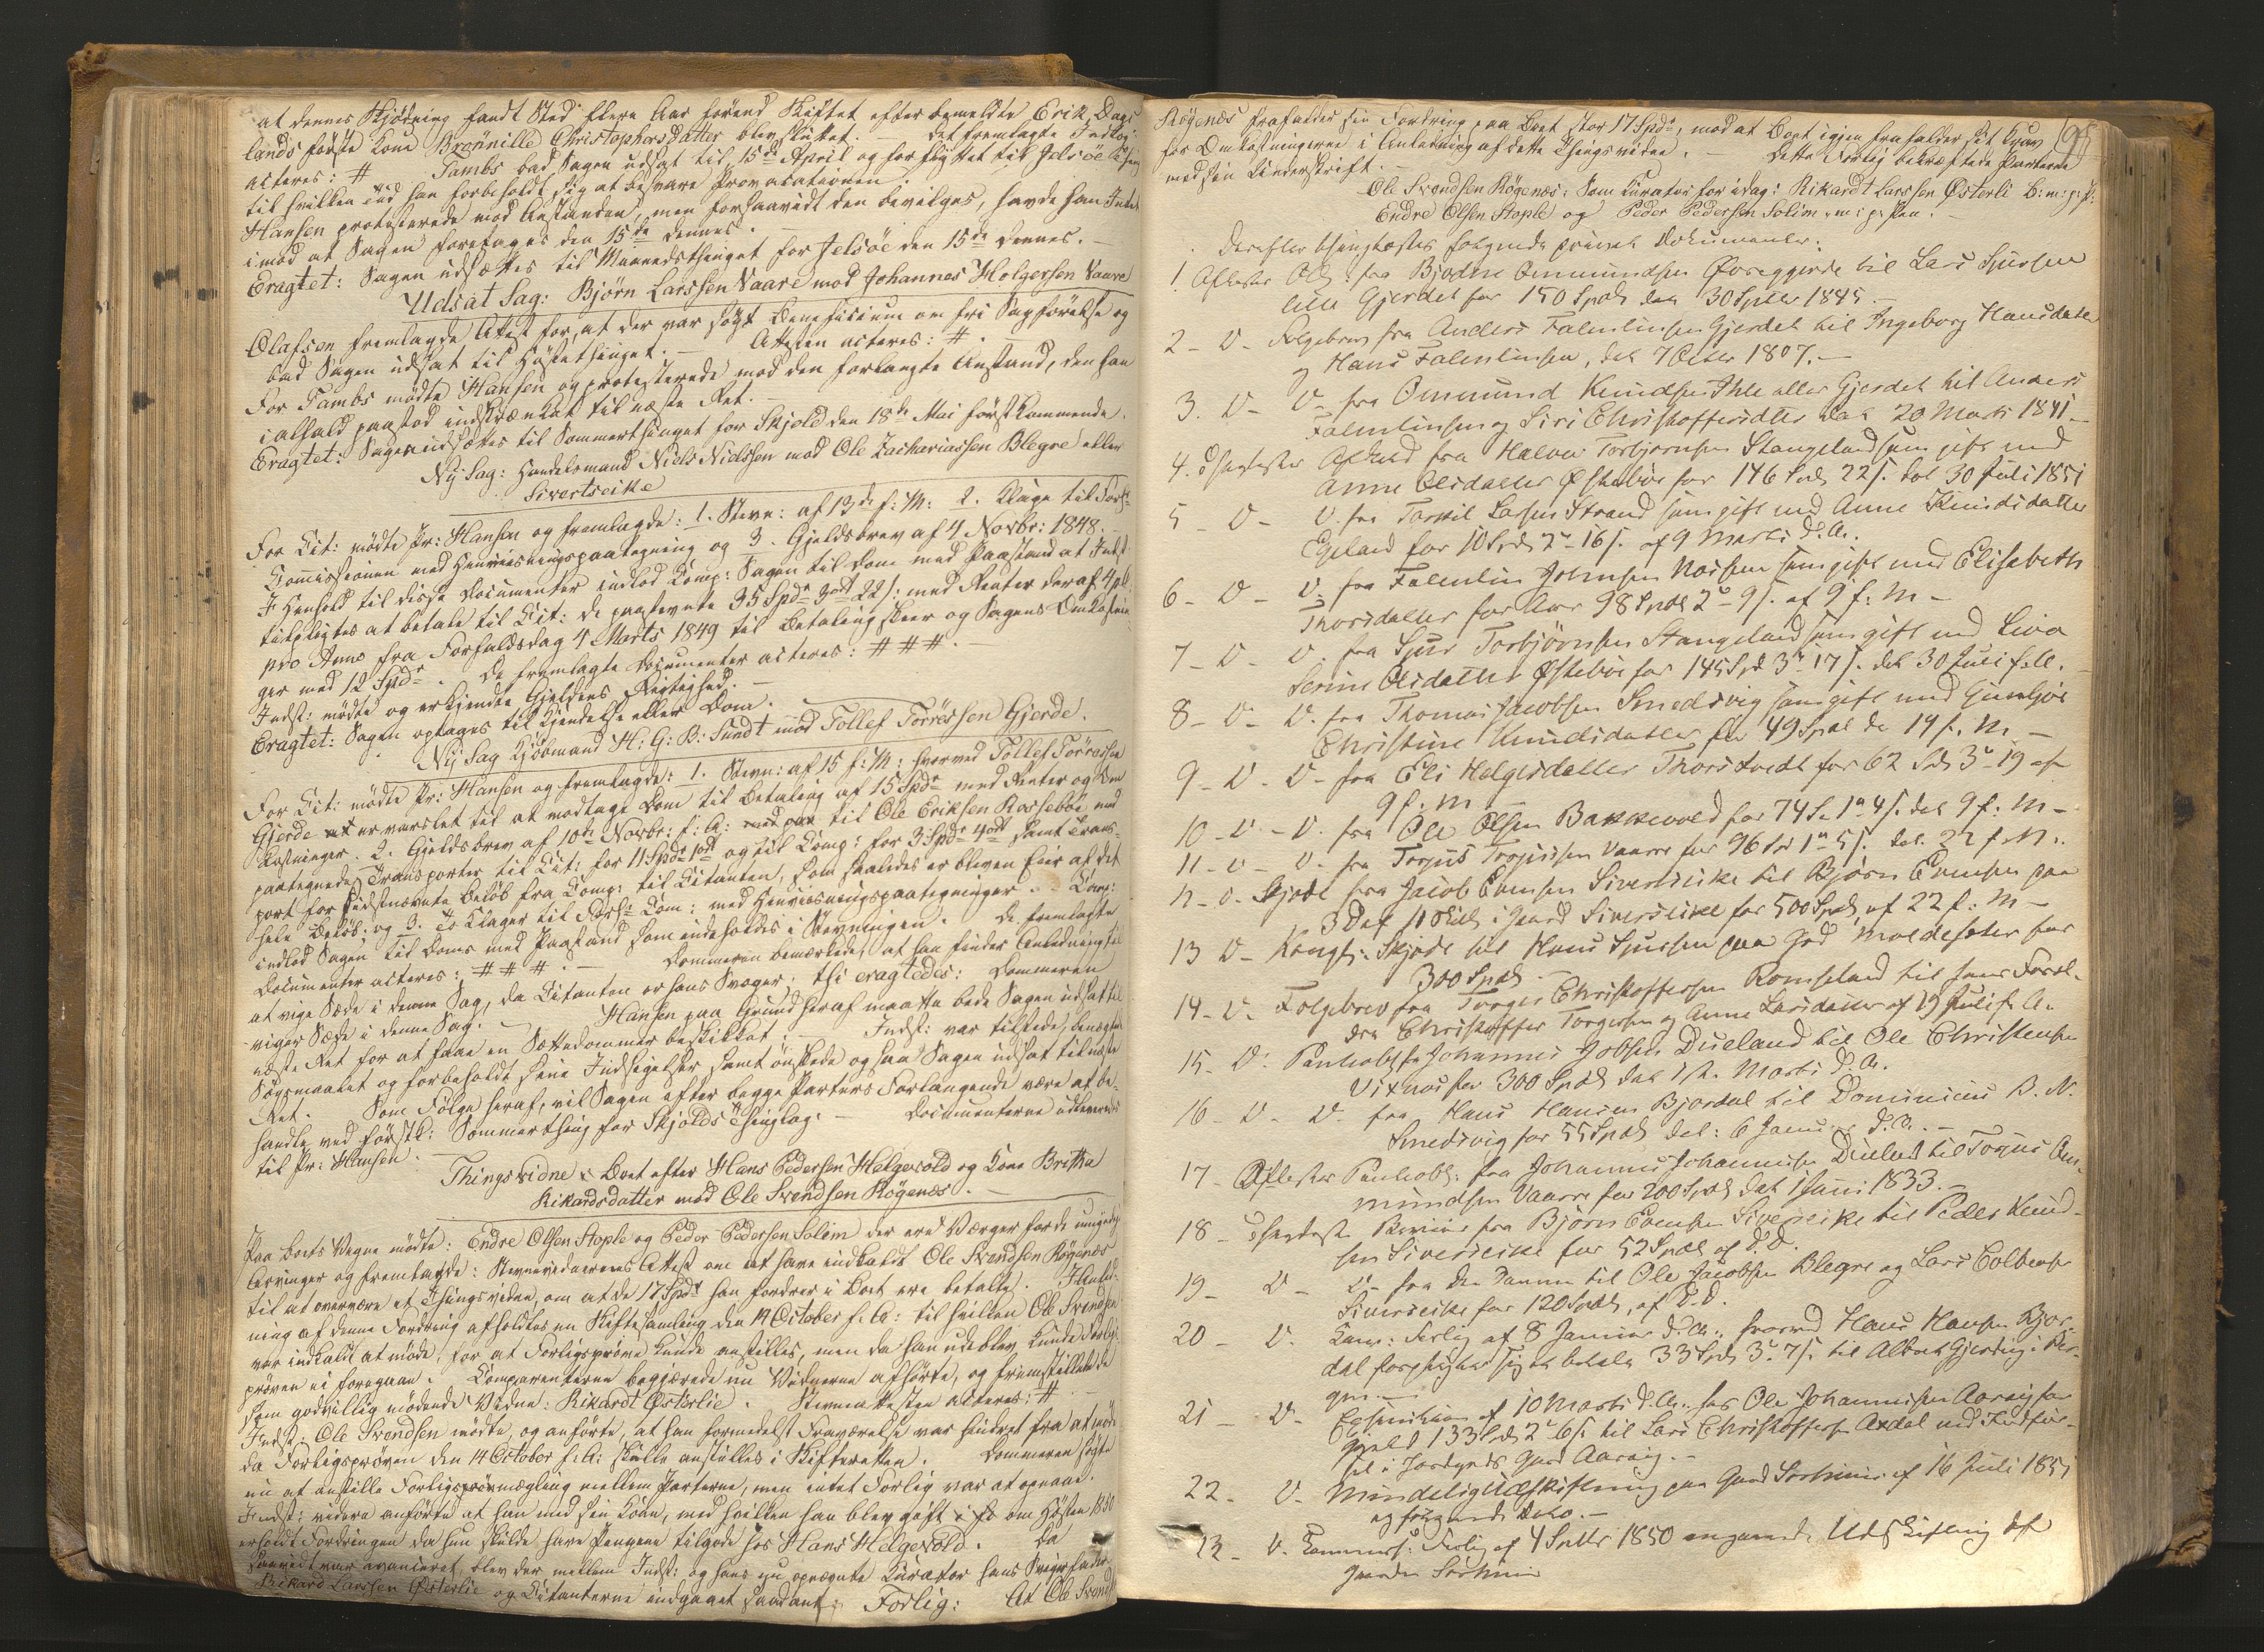 at dennes Skjödning fandt Sted flere Aar förend Skiftet efter bemeldte Erik Dags
lands förste Kone Brönnille Christophersdatter blev sluttet. Det fremlagte Indlæg
acteres: # Tambs bad Sagen udsat til 15de April og forflyttet til Jelsöe Thing
til hvilken Tid han forbeholdt sig at besvare Provocationen.
Hansen protesterede mod Anstanden, men forsaavidt den bevilges, havde han Intet
imod at Sagen foretages den 15de dennes.
Eragtet: Sagen udsættes til Maanedsthinget for Jelsöe den 15de dennes.
Udsat Sag: Björn Larssen Vaare mod Johannes Holgersen Vaare
Olafsen fremlagde Attest for, at der var søgt Beneficium om fri Sagförelse og
bad Sagen udsat til Høstethinget. Attesten acteres: #.
For Tambs mødte Hansen og protesterede mod den forlangte Anstand, den han
ialfald paastod indskrænket til næste Ret.
Eragtet: Sagen udsættes til Sommerthinget for Skjold den 18de Mai först kommende.
Ny Sag: Handelsmand Niels Nielssen mod Ole Zachariassen Blegre eller
Sivertseike
For Cit: mødte Pr: Hansen og fremlagde: 1. Stevn: af 13de f: M: 2. Klage til Forl:
Commissionen med Henviisningspaategning og 3. Gjeldsbrev af 4 Novbr: 1848.
I Henhold til disse Documenter indlod Comp: Sagen til Dom med Paastand at Indst:
tilpligtes at betale til Cit: de paastevnte 35 Spdr 3ort 22 s: med Renter deraf 4 pCt
pro Anno fra Forfaldsdag 4 Marts 1849 til Betaling skeer og Sagens Omkostnin
ger med 12 Spdr. De fremlagte Documenter acteres: # # #.
Indst: mødte og erkjendte Gjeldens Rigtighed.
Eragtet: Sagen optages til Kjendelse eller Dom.
Ny Sag Kjöbmand H: G: B: Sundt mod Tollef Torressen Gjerde.
For Cit: mødte Pr: Hansen og fremlagde: 1. Stevn: af 15 f: M: hvorved Tollef Torresen
Gjerde er varslet til at modtage Dom til Betaling af 15 Spdr med Renter og Om
kostninger. 2. Gjeldsbrev af 10de Novbr: f: A: til Ole Eriksen Rossebøe med
paategnede Transporter til Cit: for 11 Spdr 1ort og til Comp: for 3 Spdr 4ort samt Trans-
port for sidstnævnte Beløb fra Comp: til Citanten, som saaledes er bleven Eier af det
hele Beløb: og 3. to Klager til Forl: Com: med Henviisningspaategninger. Comp:
indlod Sagen til Doms med Paastand som indeholdes i Stevningen. De fremlagte
Documenter acteres: # # #. Dommeren bemærkede, at han finder Anledning til
at vige Sæde i denne Sag, da Citanten er hans Svoger; thi eragtedes: Dommeren
viger Sæde i denne Sag. Hansen paa Grund heraf maatte bede Sagen udsat til
næste Ret for at faae en Sættedommer beskikket. Indst: var tilstede, benegtede
Søgsmaalet og forbeholdt sine Indsigelser samt ønskede ogsaa Sagen udsat til næste
Ret. Som Følge heraf, vil Sagen efter begge Parters Forlangende være at be-
handle ved förstk: Sommerthing for Skjolds Thinglag. Documenterne udleveredes
til Pr: Hansen.
Thingsvidne Boet efter Hans Pedersen Helgevold og Kone Britha
Rikardsdatter mod Ole Svendsen Røgenæs.
Paa Boets Vegne mødte: Endre Olsen Stople og Peder Pedersen Solim der ere Værger for de umyndige
Arvinger og fremlagde: Stevnevidnernes Attest om at have indkaldt Ole Svendsen Røgenæs
til at overvære et Thingsvidne, om at de 17 Spdr han fordrer i Boet ere betalte. I Anled-
ning af denne Fordring afholdtes en Skiftesamling den 14 October f: A: til hvilken Ole Svendsen
var indkaldt at møde, for at Forligsprøve kunde anstilles, men da han udeblev, kunde Forligs-
prøven ei foregaae. Comparenterne begjærede nu Vidnerne afhørte, og fremstillede
som godvillig mødende Vidne: Rikardt Østerlie. Stevneattesten acteres: #
Indst: Ole Svendsen mødte, og anførte, at han formedelst Fraværelse var hindret fra at møde
da Forligsprøven den 14 October f: A: skulle anstilles i Skifteretten. Dommeren søgte
nu at anstille Forligsmægling mellem Parterne, men intet Forlig var at opnaae.
Indst: videre anførte at han med sin Kone, med hvilken han blev gift om Høsten 1850
erholdt Fordringen da hun skulde have Pengene tilgode hos Hans Helgevold. Da
saavidt var avanceret, blev der mellem Indst: og hans nu opnævnte Curator hans Svigerfader
Rikard Larssen Østerlie og Citanterne indgaaet saadant: Forlig: At Ole Svends
Røgenæs frafalder sin Fordring paa Boet stor 17 Spdr, mod at Boet igjen frafalder sit Krav 98
for Omkostningerne i Anledning af dette Thingsvidne. Dette Forlig bekræftede Parterne
med sin Underskrift.
Ole Svendsen Røgenæs: Som Curator for idag: Rikardt Larssen Østerli
Endre Olsen Stople og Peder Pedersen Solim m: p: Pen.
Derefter thinglæstes følgende private Dokumenter:
1. Aflæst Obl: fra Bjødne Ommundsen Øvreggjerde til Lars Sjursen
Gjerdet for 150 Spdl dat 30 Septbr 1845.
2 - D - Følgebrev fra Anders Falentinsen Gjerdet til Ingeborg Hansdatter
og Hans Falentinsen, dat 7 Octbr 1807.
3. D - D - fra Ommund Knudsen Ihle eller Gjerdet til Anders
Falentinsen og Siri Christoffersdtr dat 20 Marts 1841
4. Thinglæst Afkald fra Halvor Torbjornsen Stangeland som gift med
Anne Olsdatter Østebøe for 146 Spd 22 s. dat 30 Juli 1851
5 - D - D. fra Torkil Larsen Strand som gift med Anne Knudsdatter
Egeland for 10 Spd 2 - 16 s. af 9 Marts d. A.
6 - D - D. fra Falentin Johnsen Norsen som gift med Elisabeth
Thorsdatter for Arv 98 Spdl 2 - 9 s. af 9 f: M -
7 - D - D. fra Sjur Torbjörnsen Stangeland som gift med Liva
Serine Olsdatter Østebøe for 145 Spd 3 17 s. dat 30 Juli f. A.
8 - D - D. fra Thomas Jacobsen Smedsvig som gift med Gunhjör
Christine Knudsdatter for 49 Spdl dat 19 f. M. -
9 - D - D - fra Eli Helgesdatter Thorstvedt for 62 Spd 3 - 19 af
9 f. M
10 - D - D. fra Ole Olsen Bakkevold for 74 S. 1 4 s. dat 9 f: M -
11 - D - D. fra Torjus Torjussen Vaare for 96 Spd 1 5 s. dat. 22 f. M.
12 - D. Skjøde fra Jacob Evensen Sivertseike til Bjørn Evensen paa
i Gaard Sivertseike for 500 Spdl, af 22 f: M -
13 D - Kongl. Skjøde til Hans Sjursen paa Grd Moldesæter for
300 Spdl
14 - D. Følgebrev fra Torger Christoffersen Romseland til hans Forel-
dre Christoffer Torgersen og Anne Larsdatter af 19 Juli f. A.
15 - D: Pantobl. fra Johannes Jobsen Dueland til Ole Christensen
Vitnæs for 300 Spdl dat 12. Marts d. A.
16 - D - D. fra Hans Hansen Bjordal til Dominicus B. N.
Smedsvig for 55 Spdl dat: 6 Januar d. A. -
17 - Aflæst Pantobl. fra Johannes Johannesen Dueland til Torjus Om-
mundsen Vaare for 200 Spdl dat 1 Juni 1833. -
18 - Thinglæst Bevis fra Bjørn Evensen Sivertseike til Peder Knud-
sen Sivertseike for 52 Spdl af D. D.
19 - D - D - fra den Samme til Ole Jacobsen Blegre og Lars Colbensen
Sivertseike for 120 Spdl, af D. D.
20 - D. Com: Forlig af 8 Januar d. A., hvorved Hans Hansen Bjor-
dal forpligter sig at betale 33 Spd 3 - 7 s. til Albert Gjerding i Ber-
gen. -
21 - D. Execution af 10 Marts d. A. hos Ole Johannesen Aarvig for
Gjeld 133 Spd 2 6 s. til Lars Christoffersen Axdal med Indfør-
sel i Jordgods Gaard Aarvig. -
22 - D. Mindelig Udskiftning paa Gaard Sørhuus af 16 Juli 1851
og følgende Dato. -
23 - D. Commiss: Forlig af 4 Septbr 1850 angaaende Udskiftning af
Gaarden Sørhuus